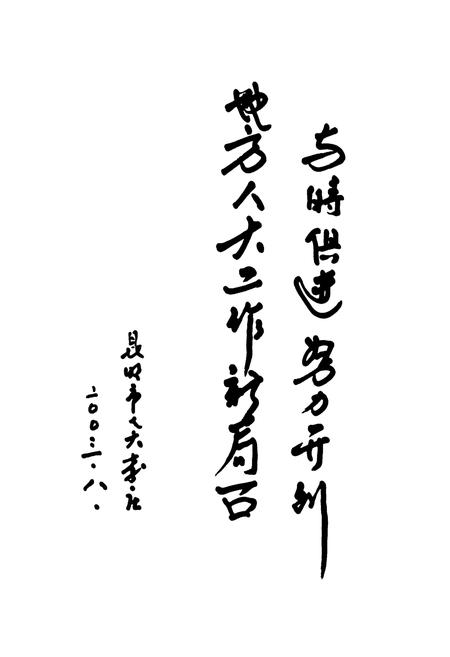 与時俱進努力开创
地方人大工作新局面
昆明市人大
二〇〇三·八·